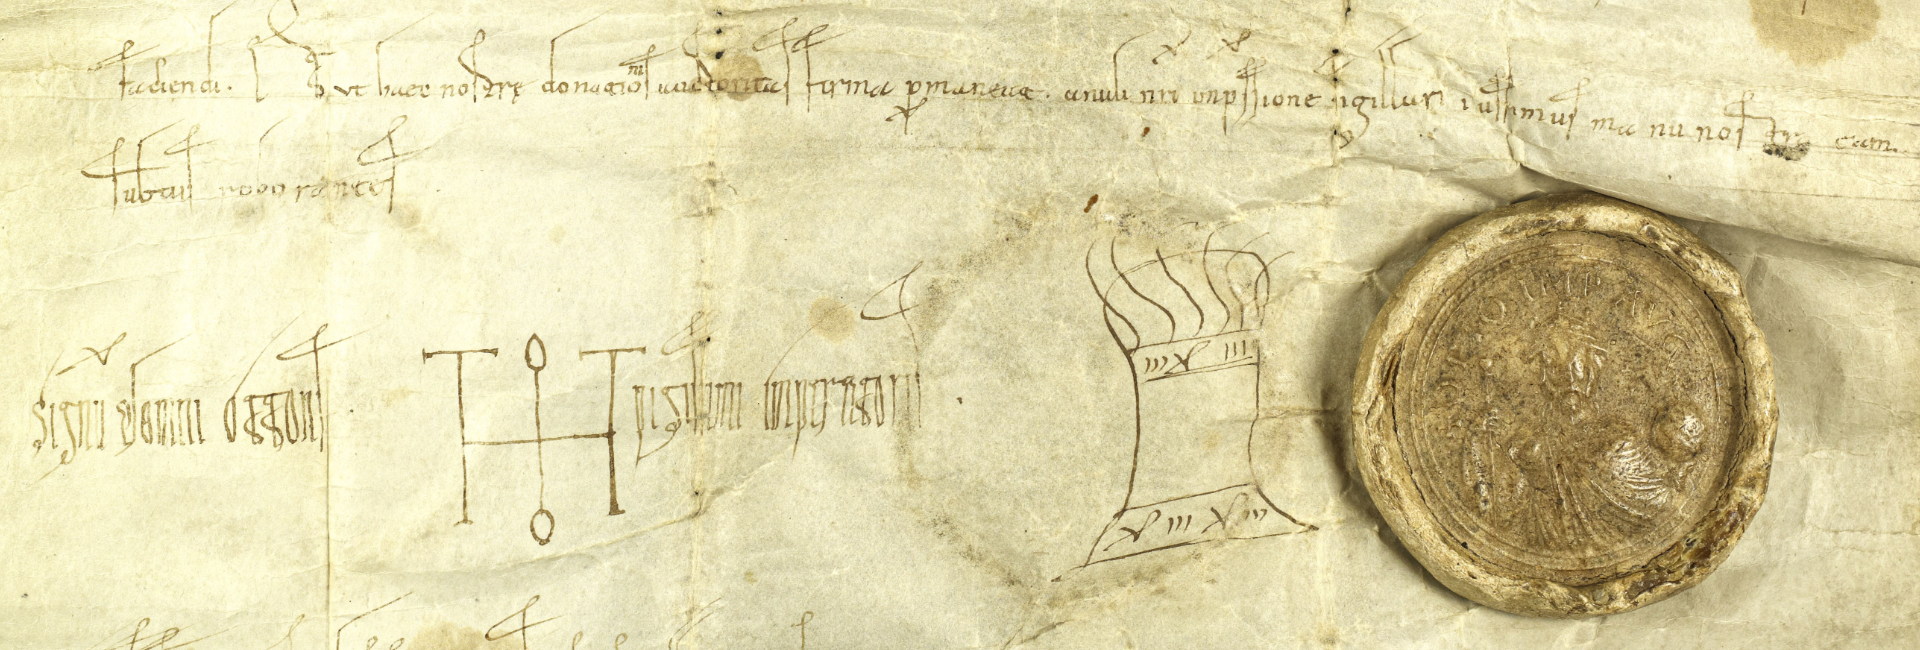 faciendi. Et ut haec nostrę donationis auctoritas firma pmaneat. anuli nri inpssione sigillari iussimus manu nostra eam
subtus roborantes
Signū domni ottonis piissimi imperatoris.
OTTO IMP AUG